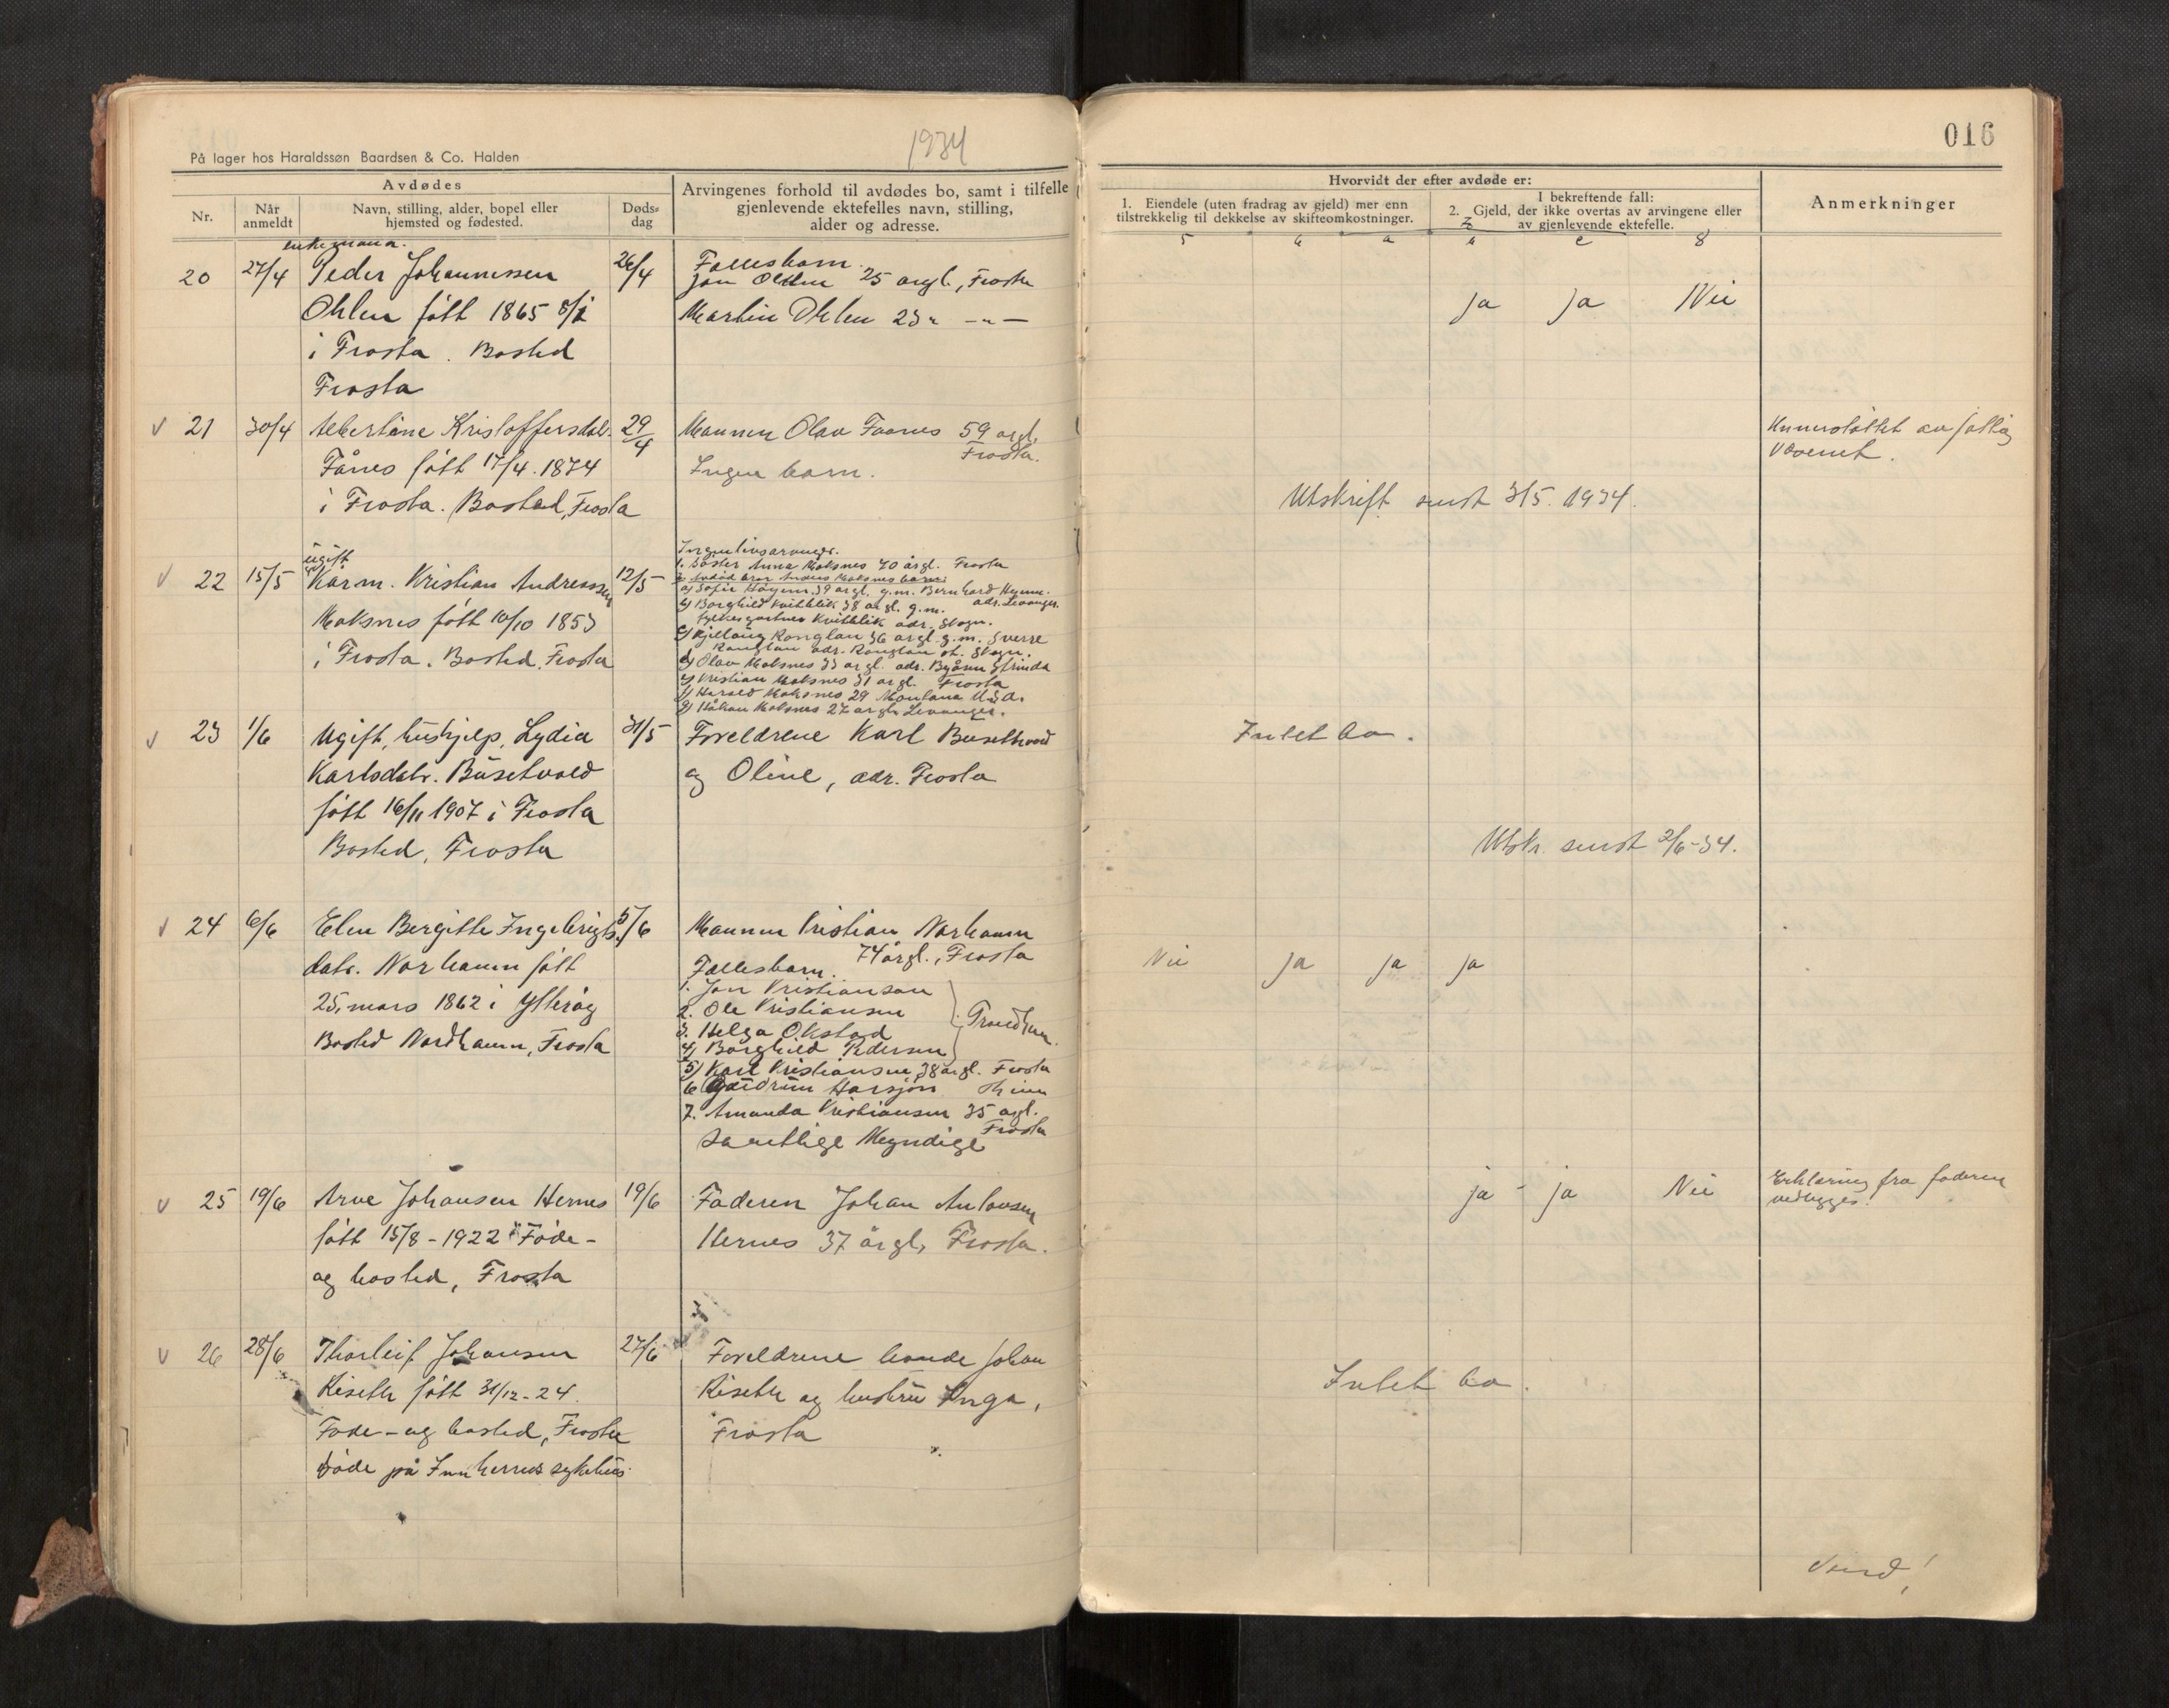 På lager hos Haraldssøn Baardsen & Co. Halden
1934
Avdødes
Nr.
Når anmeldt
Navn, stilling, alder, bopel eller hjemsted og fødested.
Døds-dag
Arvingenes forhold til avdødes bo, samt i tilfelle
gjenlevende ektefelles navn, stilling,
alder og adresse.
20 27/4 enkemann. 26/4
Peder Johannessen
Ohlen født 1865 8/1
i Frosta. Bosted
Frosta
Fellesbarn
Jon Ohlen 25 årgl., Frosta
Martin Ohlen 23 " - " -
v 21 30/4 Albertine Kristoffersdatr. 29/4
Fånes født 17/4.1874
i Frosta. Bosted, Frosta
Mannen Olav Faanes 59 årgl.
Frosta.
Ingen barn.
v 22 15/5 ugift 12/5
Kårm. Kristian Andreassen
Moksnes født 10/10 1853
i Frosta. Bosted, Frosta
Ingen livsarvinger.
1. Søster Anna Moksnes 70 årgl. Frosta
2. Avdød bror Anders Moksnes barn:
a) Sofie 39 årgl. g.m. Bernhard
adr. Levanger.
b) Borghild Kvitblik 38 årgl. g.m.
Kvitblik adr. Skogn.
c) Ronglan 36 årgl. g.m. Sverre
Ronglan adr. Ronglan st. Skogn.
d) Olav Moksnes 33 årgl. adr. Strinda
e) Kristian Moksnes 31 årgl. Frosta
f) Harald Moksnes 29 Montana U.S.A.
g) Håkon Moksnes 27 årgl. Levanger.
v 23 1/6 Ugift, hushjelp, Lydia 31/5
Karlsdatr. Busetvold
født 16/11 1907 i Frosta
Bosted, Frosta
Foreldrene Karl Busetvold
og Oline, adr. Frosta
v 24 6/6 Elen Bergitte Ingebrigts- 5/6
datr. Norhamn født
25. mars 1862 i Ytterøy
Bosted Nordhamn, Frosta
Mannen Kristian Norhamn
74 årgl., Frosta
Fellesbarn.
1. Jon Kristiansen
2. Ole Kristiansen
3. Helga Okstad
4) Borghild Pedersen
Trondheim.
5) Karl Kristiansen 38 årgl. Frosta
6 Gudrun Harsjøn
7. Amanda Kristiansen 35 årgl.
Frosta
Samtlige Myndige
v 25 19/6 Arne Johansen Hernes 19/6
født 15/8-1922 Føde-
og bosted, Frosta
Faderen Johan Antonsen
Hernes 37 årgl, Frosta.
v 26 28/6 Thorleif Johansen 27/6
Riseth født 31/12-24.
Føde- og bosted, Frosta
døde på Innherreds sykehus
Foreldrene bonde Johan
Riseth og hustru Inga,
Frosta
016
Hvorvidt der efter avdøde er:
1. Eiendele (uten fradrag av gjeld) mer enn
tilstrekkelig til dekkelse av skifteomkostninger.
I bekreftende fall:
2. Gjeld, der ikke overtas av arvingene eller
av gjenlevende ektefelle.
Anmerkninger
5 6 a b c 8
ja ja Nei
Understøttet av fattig
vesenet.
Utskrift sendt 3/5. 1934.
Intet bo.
Utskr. sendt 2/6-34.
Nei ja ja ja
ja - ja Nei
Erklæring fra faderen
vedlegges.
Intet bo.
Vend!